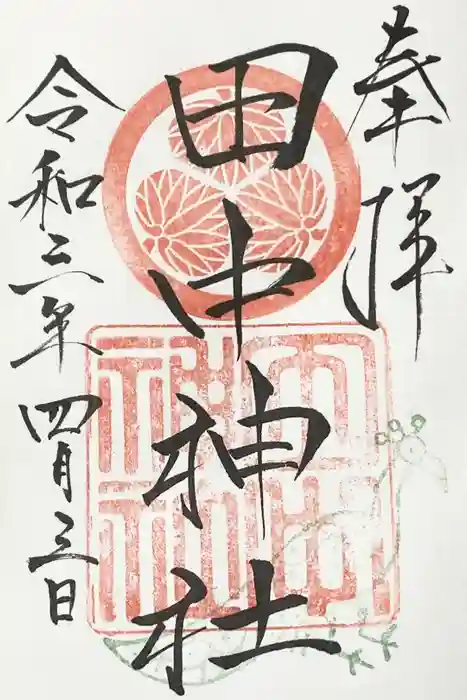 奉拝
田中神社
令和三年四月三日